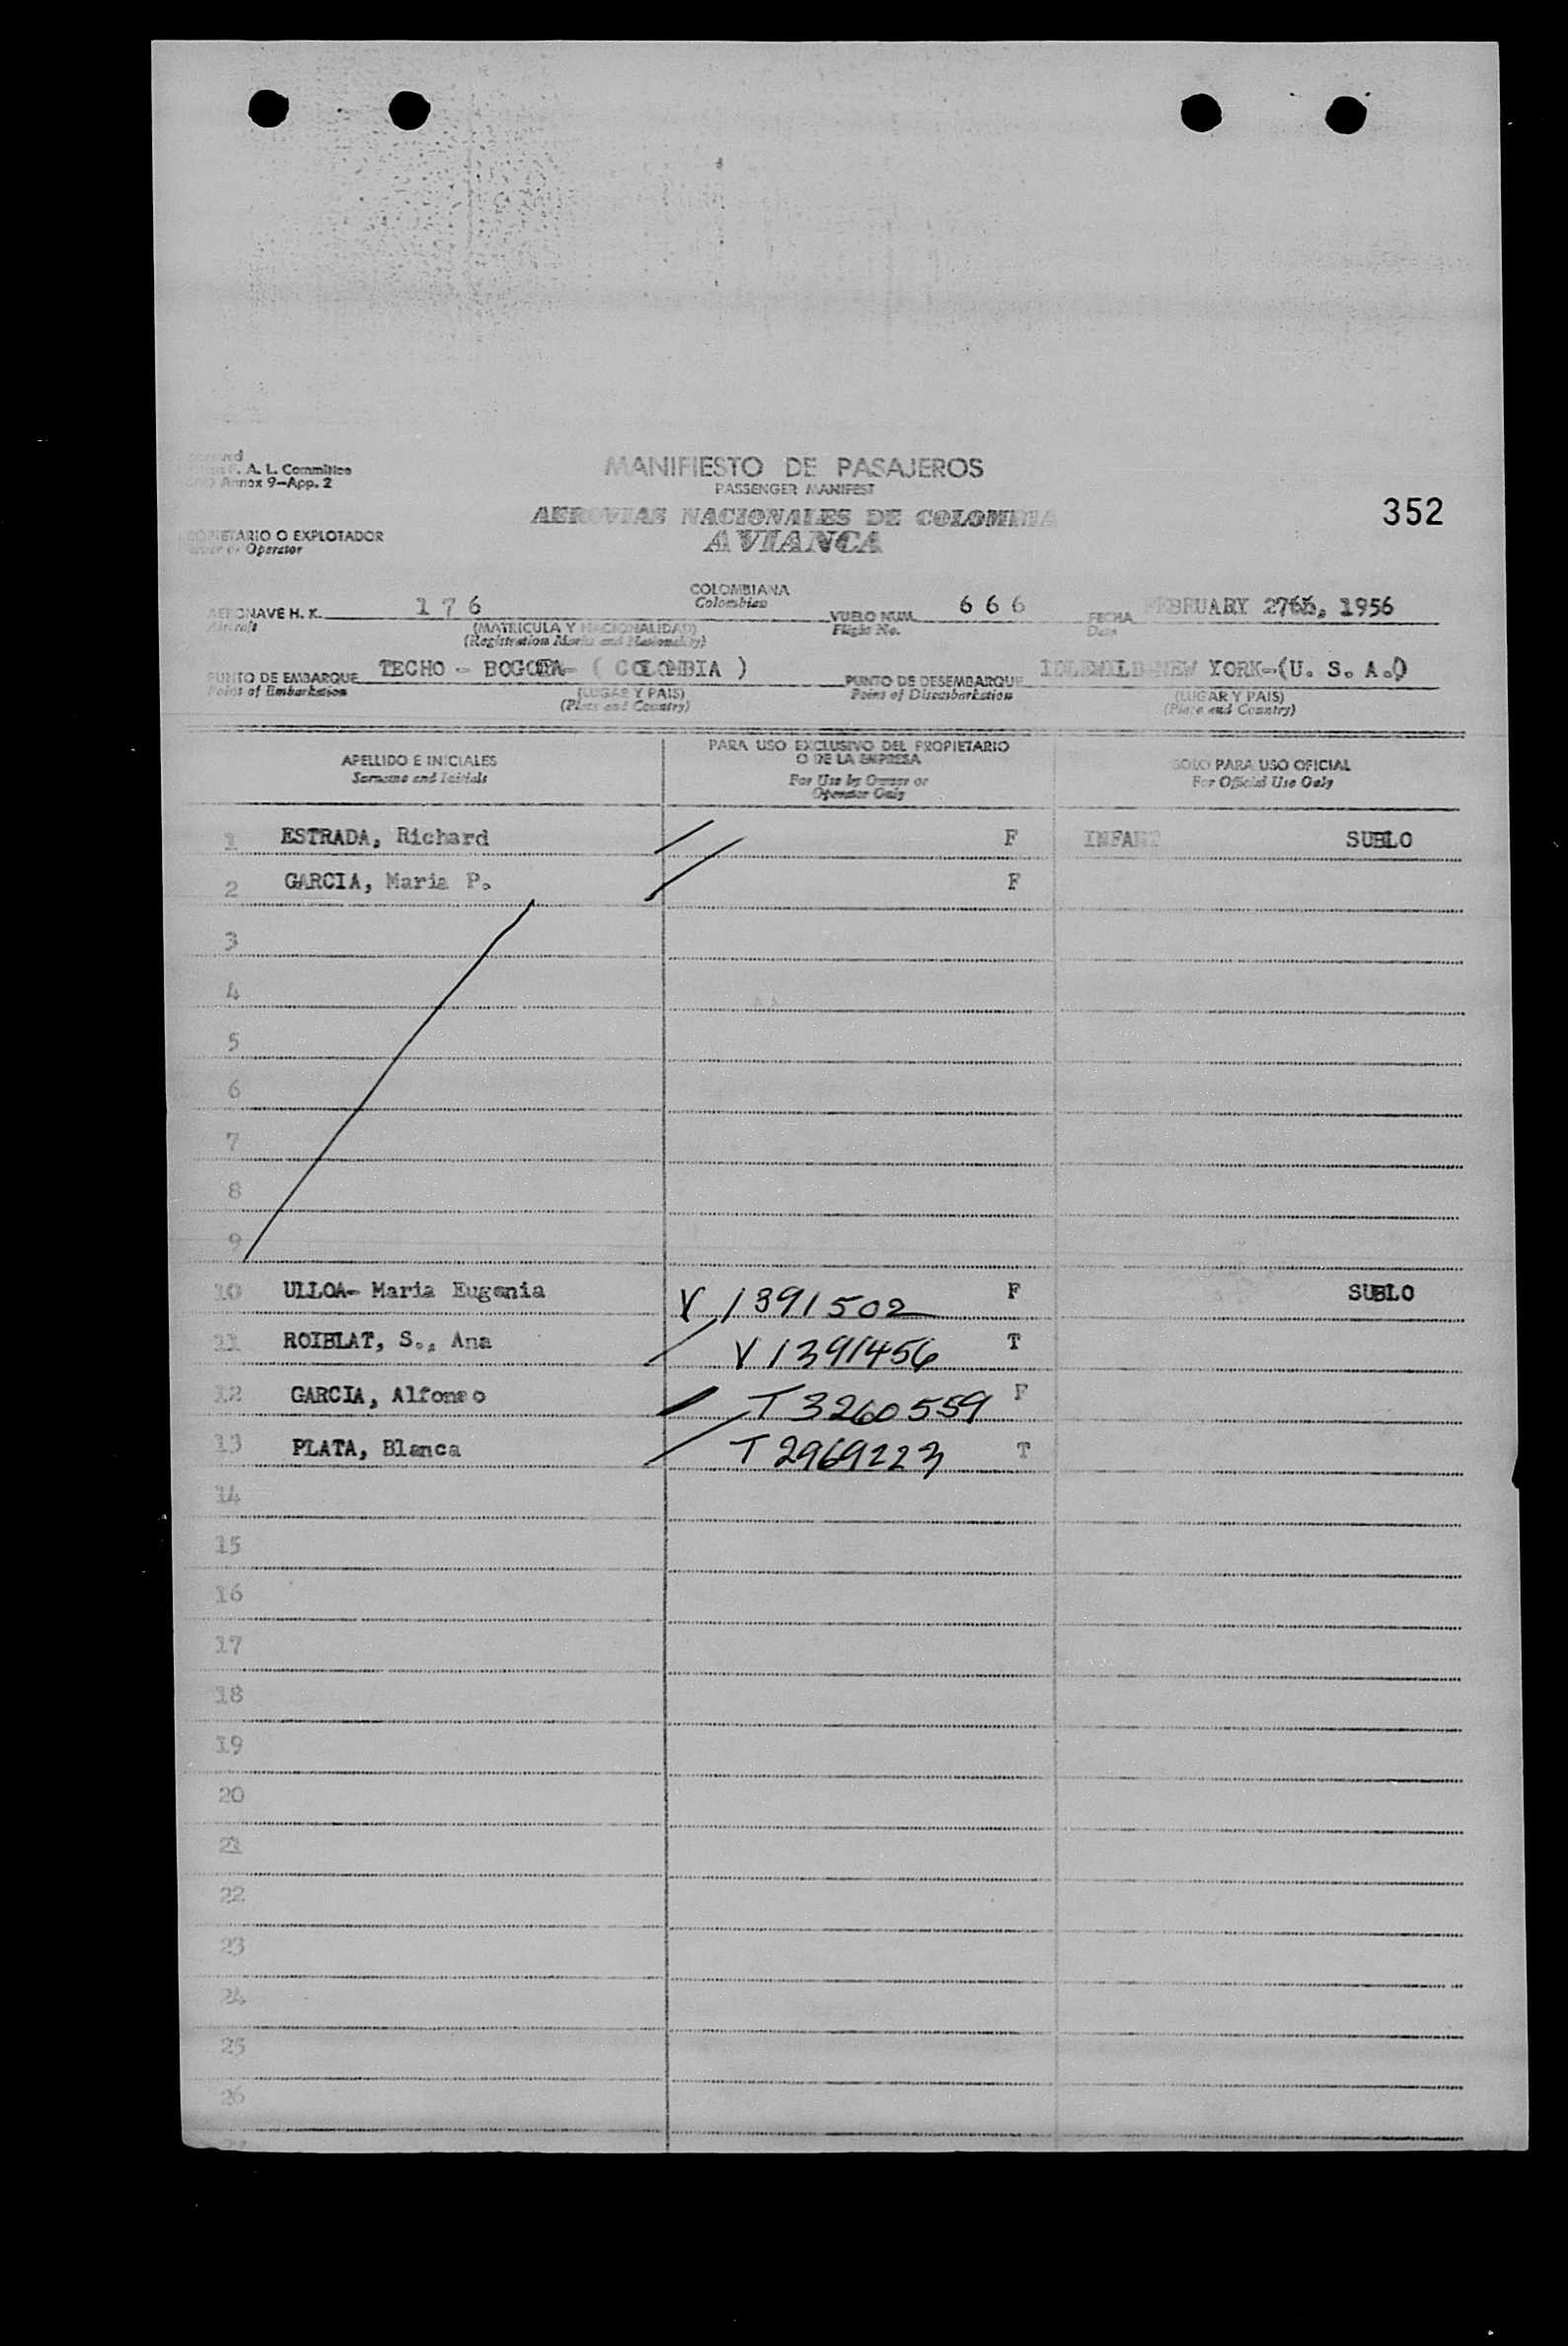 F. A. L. Committee
Annex 9-App. 2
MANIFIESTO DE PASAJEROS
PASSENGER MANIFEST
AEROVIAS NACIONALES DE COLOMBIA
AVIANCA
352
PROPIETARIO O EXPLOTADOR
Owner or Operator
AERONAVE H. K. 176
Aircraft
(MATRICULA Y NACIONALIDAD)
(Registration Marks and Nationality)
COLOMBIANA
Colombian
VUELO NUM. 666
Flight No.
FECHA FEBRUARY 1956
Date
PUNTO DE EMBARQUE TECHO - BOGOTA- ( COLOMBIA )
Point of Embarkation
(LUGAR Y PAIS)
(Place and Country)
PUNTO DE DESEMBARQUE IDLEWILD-NEW YORK-(U. S. A.)
Point of Disembarkation
(LUGAR Y PAIS)
(Place and Country)
APELLIDO E INICIALES
Surname and Initials
PARA USO EXCLUSIVO DEL PROPIETARIO
O DE LA EMPRESA
For Use by Owner or
Operator Only
SOLO PARA USO OFICIAL
For Official Use Only
1 ESTRADA, Richard F INFANT SUBLO
2 GARCIA, Maria P. F
3
4
5
6
7
8
9
10 ULLOA- Maria Eugenia V 1391502 F SUBLO
11 ROIBLAT, S., Ana V 1391456 T
12 GARCIA, Alfonso T 3260559 F
13 PLATA, Blanca T 2969223 T
14
15
16
17
18
19
20
21
22
23
24
25
26